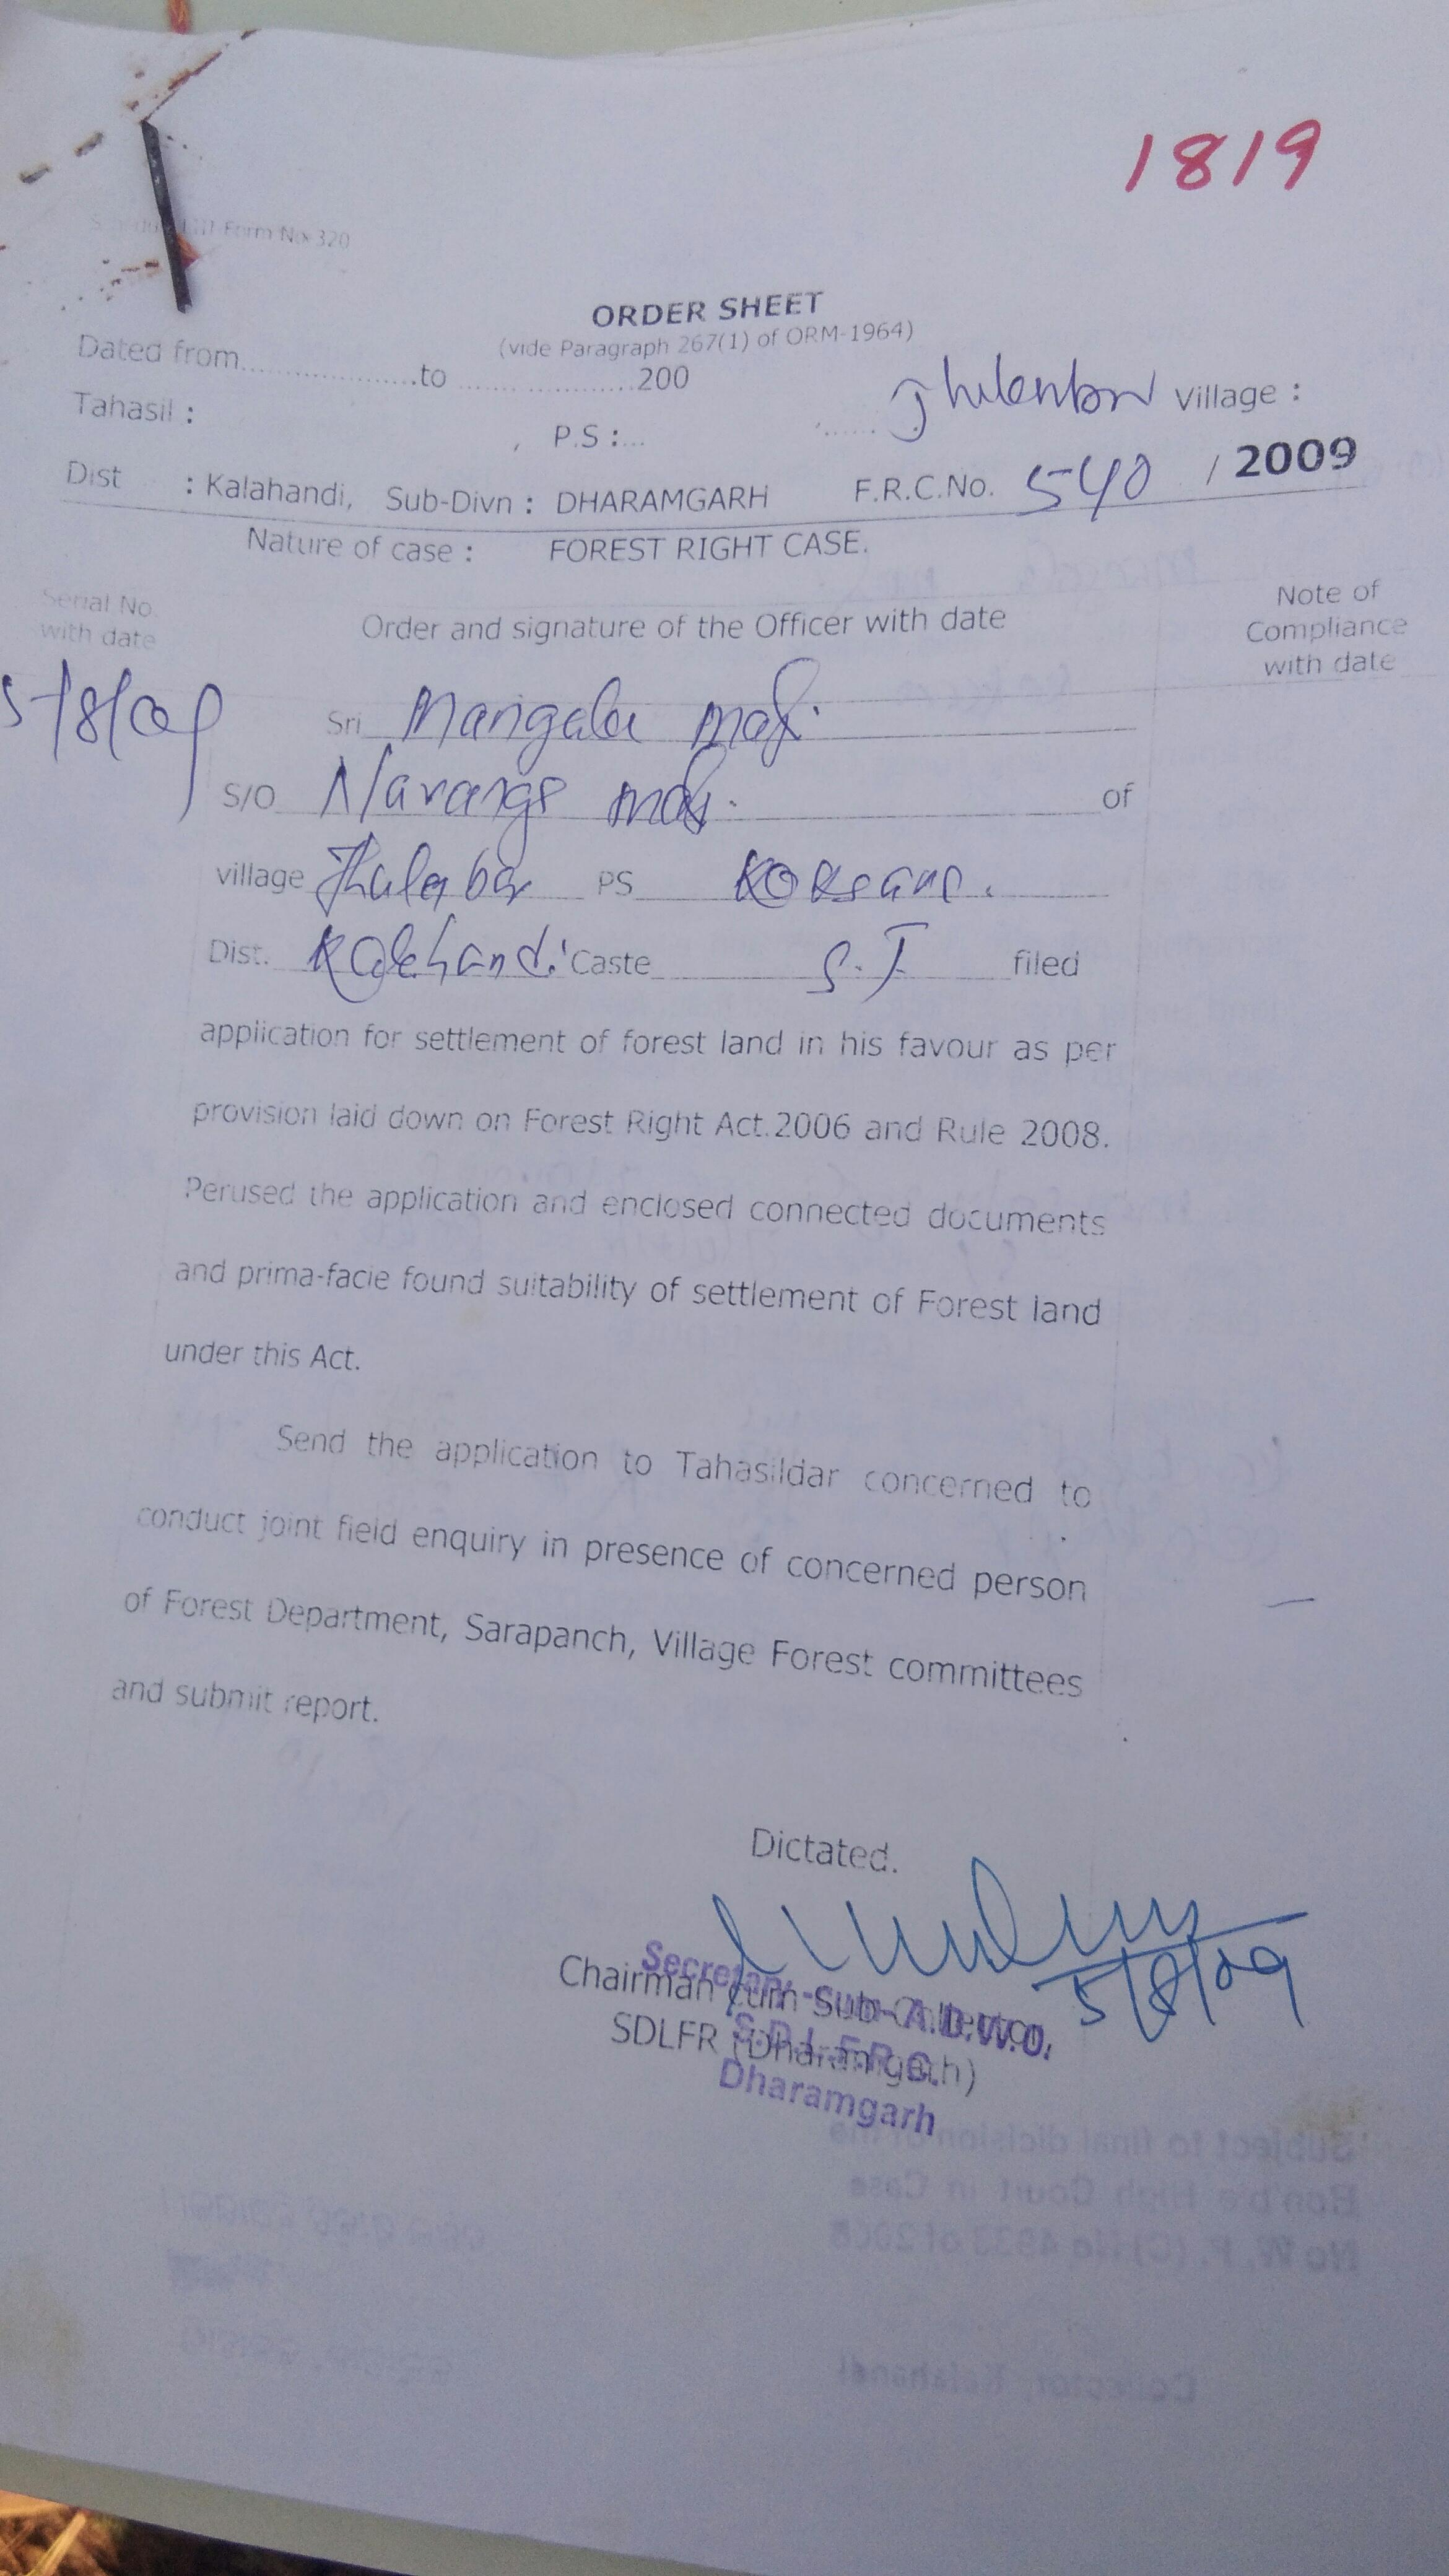 1819
Form No. 320
ORDER SHEET
(vide Paragraph 267(1) of ORM-1964)
Dated from....................to ....... ..............200
Tahasil : , P.S :... Village :
Dist : Kalahandi, Sub-Divn : DHARAMGARH F.R.C.No. 540 / 2009
Nature of case : FOREST RIGHT CASE.
Serial No. with date
Order and signature of the Officer with date
Note of Compliance with date
5/8/09
Sri Mangalu Maji
S/O Majhi of
village PS
Dist. Kalahandi Caste S.T filed
application for settlement of forest land in his favour as per
provision laid down on Forest Right Act.2006 and Rule 2008.
Perused the application and enclosed connected documents
and prima-facie found suitability of settlement of Forest land
under this Act.
Send the application to Tahasildar concerned to
conduct joint field enquiry in presence of concerned person
of Forest Department, Sarapanch, Village Forest committees
and submit report.
Dictated.
5/8/09
Chairman cum-Sub-Collector,
SDLFR (Dharamgarh)
Secretary -Cum- A.D.W.O.
S.D.L.F.R.C.
Dharamgarh